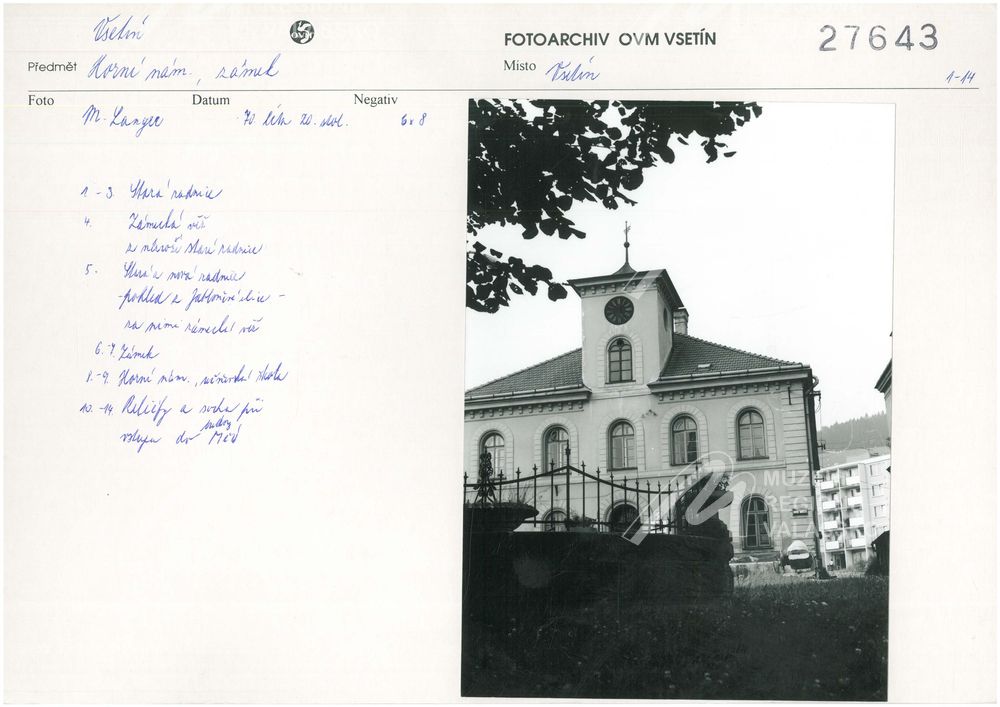 Vsetín
OVM
FOTOARCHIV OVM VSETÍN
27643
Předmět Horní nám., zámek
Místo Vsetín
1-14
Foto Datum Negativ
M. Langer 70. léta 20. stol. 6x8
1.-3. Stará radnice
4. Zámecká věž
z nároží staré radnice
5. Stará a nová radnice
pohled z Jabloňové ulice -
za nimi zámecká věž
6.-7. Zámek
8.-9. Horní nám., učňovská škola
10.-14. Reliéfy a socha při
vstupu do budovy MěÚ
MUZE
REG
VALA